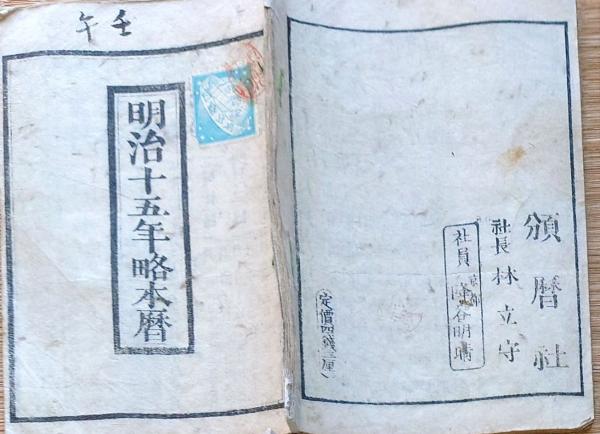 壬午
明治十五年略本暦
頒暦社
社長 林立守
社員 谷明晴
定價四錢三厘